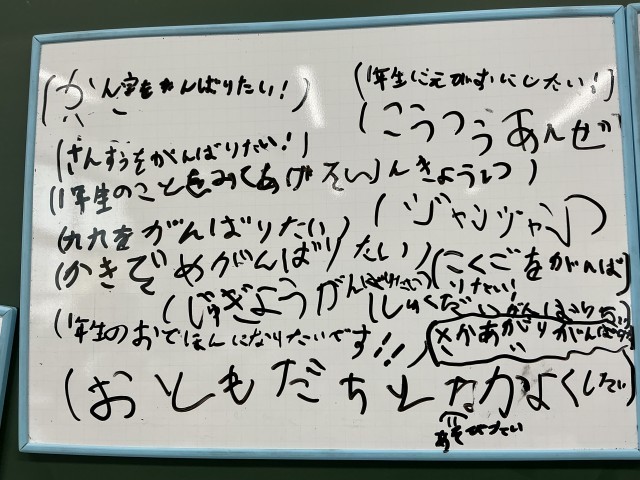 (かん字をがんばりたい!)
(1年生に元気にしたい!)
(こうつうあんぜ
(さんすうをがんばりたい!)
(1年生のことをみてあげたい)
んきょうしつ)
(ジャンジャン)
(九九をがんばりたい)
(かきぞめがんばりたい)
(こくごをがんば
りたい!)
(じゅぎょうがんばりたい)
(しゅくだいがんばりたい
(1年生のおてほんになりたいです!!!)
さかあがりがんばり
たい
(おともだちとなかよくしたい)